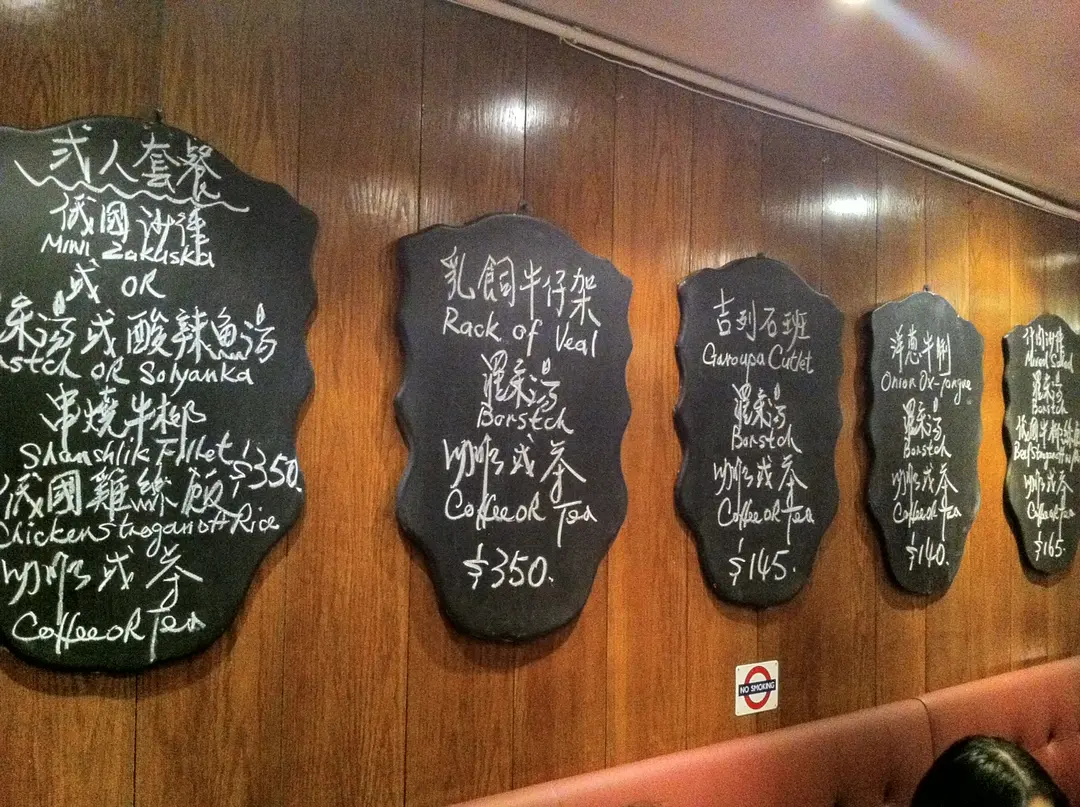 弍人套餐
俄國沙律
MINI Zakuska
或 OR
宋湯或酸辣魚湯
OR Solyanka
串燒牛柳
Shanshlik Fillet
$350.
俄國雞絲飯
Chicken Stroganoff Rice
咖啡或茶
Coffee OR Tea
乳飼牛仔架
Rack of Veal
羅宋湯
Borstch
咖啡或茶
Coffee OR Tea
$350.
吉列石班
Garoupa Cutlet
羅宋湯
Borstch
咖啡或茶
Coffee OR Tea
$145.
洋葱牛脷
Onion Ox-tongue
羅宋湯
Borstch
咖啡或茶
Coffee OR Tea
$140.
沙律
Mixed Salad
羅宋湯
Borstch
俄國牛柳絲
Beef Stroganoff
咖啡或茶
Coffee OR Tea
$165.
NO SMOKING